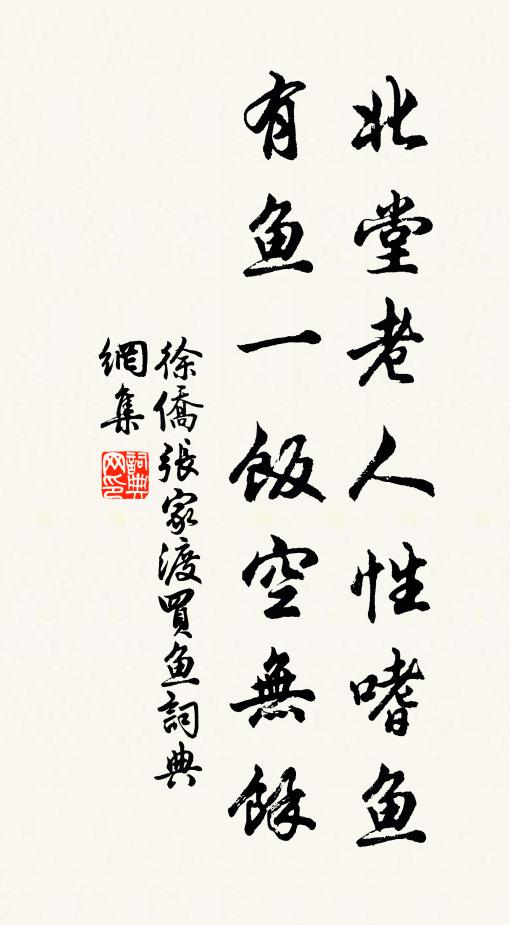 北堂老人性嗜鱼
有鱼一飯空無餘
徐僑張家渡買鱼詞典
網集
詞典
网印